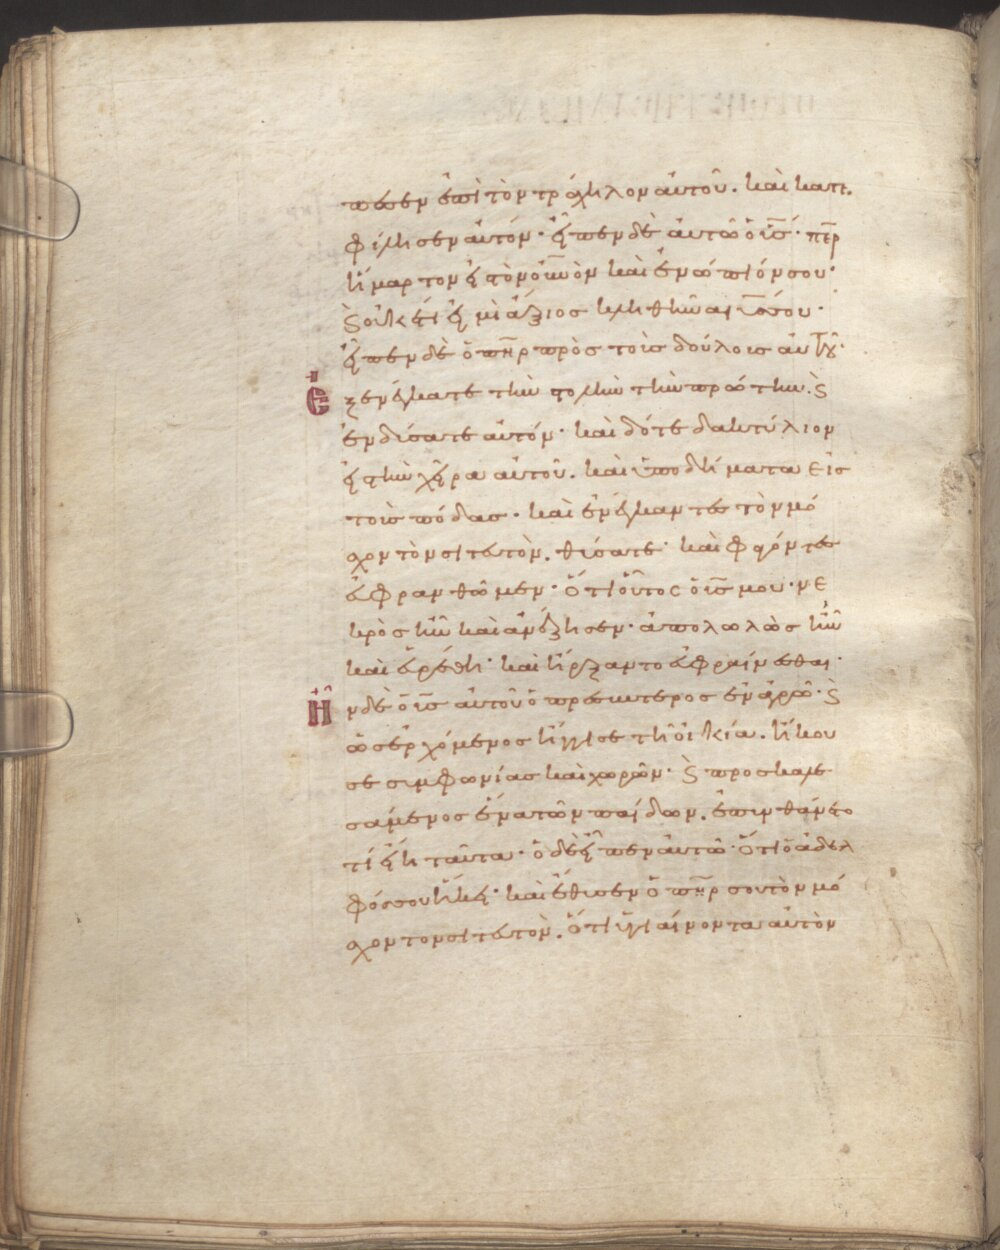 πεσεν ἐπὶ τὸν τράχηλον αὐτοῦ. καὶ κατε
φίλησεν αὐτόν· εἶπεν δὲ αὐτῶ ὁ ιϲ· περ
ἥμαρτον εἰς τὸν οὐνὸν καὶ ἐνώπιόν σου·
Ϛ οὐκέτι εἰμὶ ἄξιος κληθῆναι υϲ σου·
εἶπεν δὲ ὁ πηρ πρὸς τοὺς δούλους αὐτοῦ·
Ἐξενέγκατε τὴν στολὴν τὴν πρώτην. Ϛ
ἐνδύσατε αὐτόν· καὶ δότε δακτύλιον
εἰς τὴν χεῖρα αὐτοῦ. καὶ ὑποδήματα εἰς
τοὺς πόδας. καὶ ἐνέγκαντες τὸν μό
σχον τὸν σιτευτὸν. θύσατε· καὶ φαγόντες
εὐφρανθῶμεν· ὅτι οὗτος ὁ υϲ μου· νε
κρὸς ἦν καὶ ἀνέζησεν· ἀπολωλὼς ἦν
καὶ εὑρέθη· καὶ ἤρξαντο εὐφραίνεσθαι·
Ἦν δὲ ὁ υϲ αὐτοῦ ὁ πρεσβύτερος ἐν ἀγρῶ· Ϛ
ὡς ἐρχόμενος ἤγγισε τῆ οἰκία. ἤκου
σε συμφωνίας καὶ χορῶν· Ϛ προσκαλε
σάμενος ἕνα τῶν παίδων. ἐπυνθάνετο
τί εἴη ταῦτα· ὁ δὲ εἶπεν αὐτῶ· ὅτι ὁ ἀδελ
φός σου ἥκει· καὶ ἔθυσεν ὁ πηρ σου τὸν μό
σχον τον σιτευτὸν. ὅτι ὑγιαίνοντα αὐτὸν